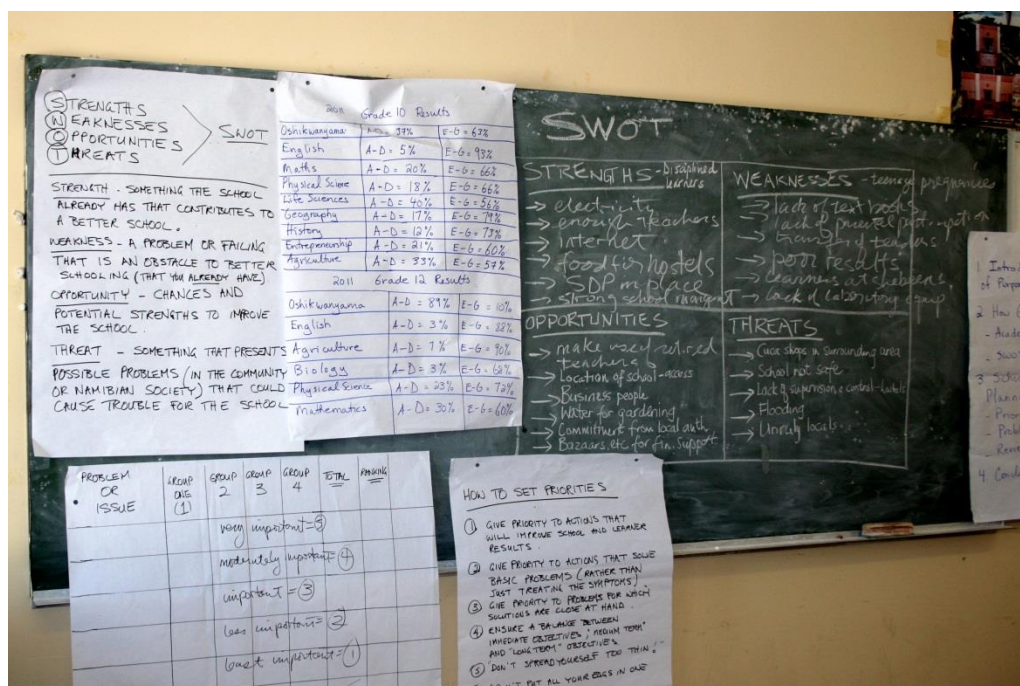 STRENGTHS
WEAKNESSES
OPPORTUNITIES
THREATS
SWOT
STRENGTH - SOMETHING THE SCHOOL
ALREADY HAS THAT CONTRIBUTES TO
A BETTER SCHOOL.
WEAKNESS - A PROBLEM OR FAILING
THAT IS AN OBSTACLE TO BETTER
SCHOOLING (THAT YOU ALREADY HAVE)
OPPORTUNITY - CHANCES AND
POTENTIAL STRENGTHS TO IMPROVE
THE SCHOOL.
THREAT - SOMETHING THAT PRESENTS
POSSIBLE PROBLEMS (IN THE COMMUNITY
OR NAMIBIAN SOCIETY) THAT COULD
CAUSE TROUBLE FOR THE SCHOOL
2011 Grade 10 Results
Oshikwanyama A-D = 37% E-G = 63%
English A-D = 5% E-G = 93%
Maths A-D = 20% E-G = 66%
Physical Science A-D = 18% E-G = 66%
Life Sciences A-D = 40% E-G = 56%
Geography A-D = 17% E-G = 79%
History A-D = 12% E-G = 73%
Entrepreneurship A-D = 21% E-G = 60%
Agriculture A-D = 33% E-G = 57%
2011 Grade 12 Results
Oshikwanyama A-D = 89% E-G = 10%
English A-D = 3% E-G = 88%
Agriculture A-D = 7% E-G = 90%
Biology A-D = 3% E-G = 62%
Physical Science A-D = 23% E-G = 72%
Mathematics A-D = 30% E-G = 60%
SWOT
STRENGTHS - Disciplined
learners
→ electricity
→ enough teachers
→ internet
→ food for hostels
→ SDP in place
→ strong school
WEAKNESSES - teenage pregnancies
→ lack of text books
→ lack of
→ transfer of teachers
→ poor results
→ learners at shebeens
→ Lack of laboratory equip
OPPORTUNITIES
→ make use of retired
teachers
→ Location of school - access
→ Business people
→ Water for gardening
→ Commitment from local auth.
→ Bazaars, etc for fin. Support
THREATS
→ Cuca shops in surrounding area
→ School not safe
→ Lack of supervision & control - hostels
→ Flooding
→ Unruly locals.
1. Introd
of Purpo
2 How
- Acade
- SWOT
3 Scho
Planni
- Prior
- Probl
- Revie
4. Concl
PROBLEM
OR
ISSUE
GROUP
ONE
(1)
GROUP
2
GROUP
3
GROUP
4
TOTAL
RANKING
very important = 5
moderately important = 4
important = 3
less important = 2
least important = 1
HOW TO SET PRIORITIES
1 GIVE PRIORITY TO ACTIONS THAT
WILL IMPROVE SCHOOL AND LEARNER
RESULTS.
2 GIVE PRIORITY TO ACTIONS THAT SOLVE
BASIC PROBLEMS (RATHER THAN
JUST TREATING THE SYMPTOMS)
3 GIVE PRIORITY TO PROBLEMS FOR WHICH
SOLUTIONS ARE CLOSE AT HAND.
4 ENSURE A BALANCE BETWEEN
IMMEDIATE OBJECTIVES, "MEDIUM TERM"
AND "LONG TERM" OBJECTIVES
5 "DON'T SPREAD YOURSELF TOO THIN!"
PUT ALL YOUR EGGS IN ONE